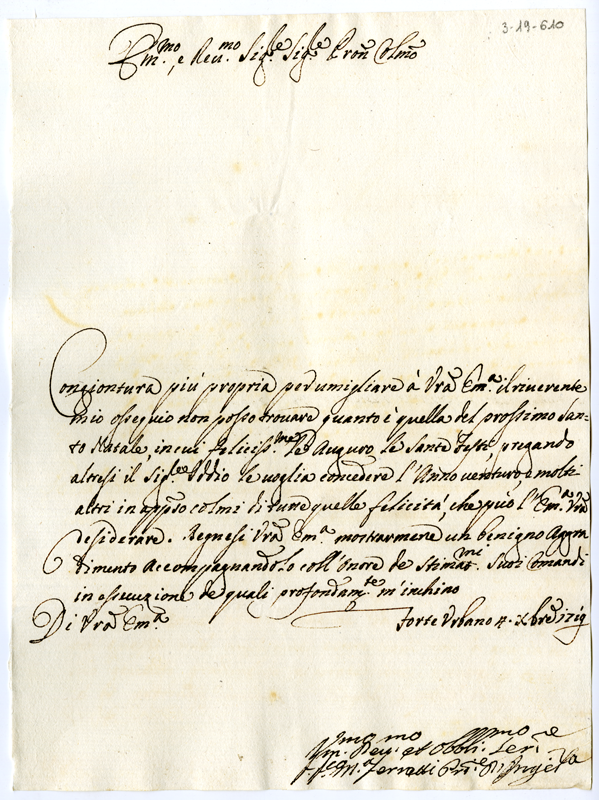 3-19-610
Em.mo, e Rev.mo Sig.re Sig.re Pron Colmo
Congiontura più propria per umigliare à Vra Em.a il riverente
mio ossequio non posso trovare quanto è quella del prossimo San-
to Natale, in cui feliciss.me Le Auguro le Sante Feste, pregando
altresi il Sig.re Iddio le voglia concedere l'Anno venturo e molti
altri in appso colmi di tutte quelle felicità, che può l'Em.a Vra
desiderare. Degnesi Vra Em.a mostrarmene un benigno Aggra
dimento Accompagnandolo coll'Onore de Stimat.mi Suoi Comandi
in essecuzione de quali profondam.te m'inchino
Di Vra Em.a
Forte Urbano 4. Xbre 1719
Um. Dev. et Obbl. Ser.